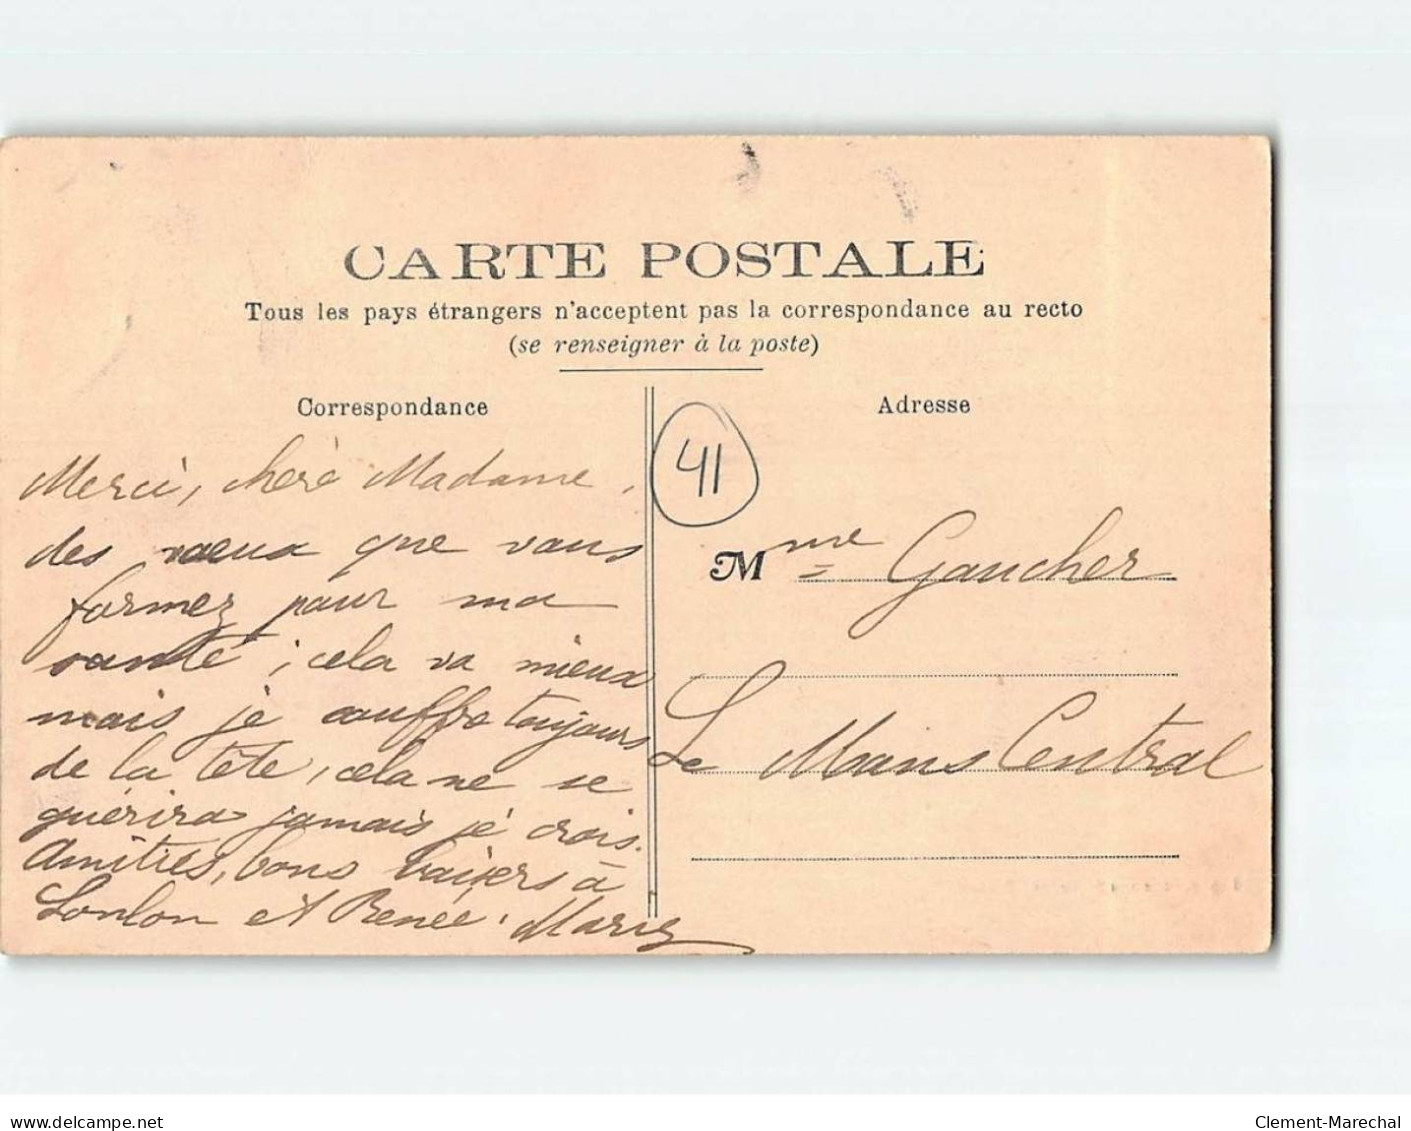 CARTE POSTALE
Tous les pays étrangers n'acceptent pas la correspondance au recto
(se renseigner à la poste)
Correspondance
Merci, chère Madame,
des vœux que vous
formez pour ma
santé ; cela va mieux
mais je souffre toujours
de la tête, cela ne se
guérira jamais je crois.
Amitiés, bons baisers à
Loulou et Renée. Marie
41
Adresse
Mme Gaucher
Le Mans Central
delcampe.net
Clement-Marechal